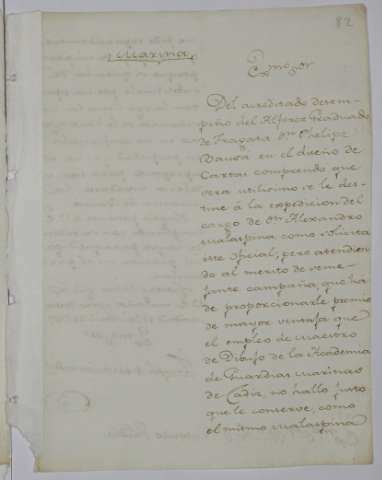 82
Marina,
Exmo. Sor.
Del acreditado desem-
peño del Alferez Graduado
de Fragata Dn. Phelipe
Bauza en el diseño de
Cartas comprendo que
sera utilisimo se le des-
tine à la expedicion del
cargo de Dn. Alexandro
Malaspina como solicita
este oficial; pero atendien-
do al merito de seme-
jante campaña, que ha
de proporcionarle premio
de mayor ventaja que
el empleo de Maestro
de Dibujo de la Academia
de Guardias Marinas
de Cadiz, no hallo justo
que le conserve, como
el mismo Malaspina